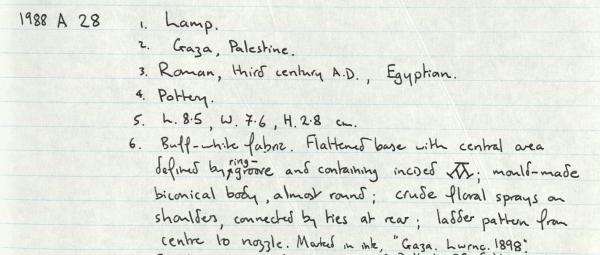 1988 A 28 1. Lamp.
2. Gaza, Palestine.
3. Roman, third century A.D., Egyptian.
4. Pottery.
5. L. 8.5, W. 7.6, H. 2.8 cm.
6. Buff-white fabric. Flattened base with central area
defined by ring-groove and containing incised ; mould-made
biconical body, almost round; crude floral sprays on
shoulders, connected by ties at rear; ladder pattern from
centre to nozzle. Marked in ink, "Gaza. Lwrnc. 1898".